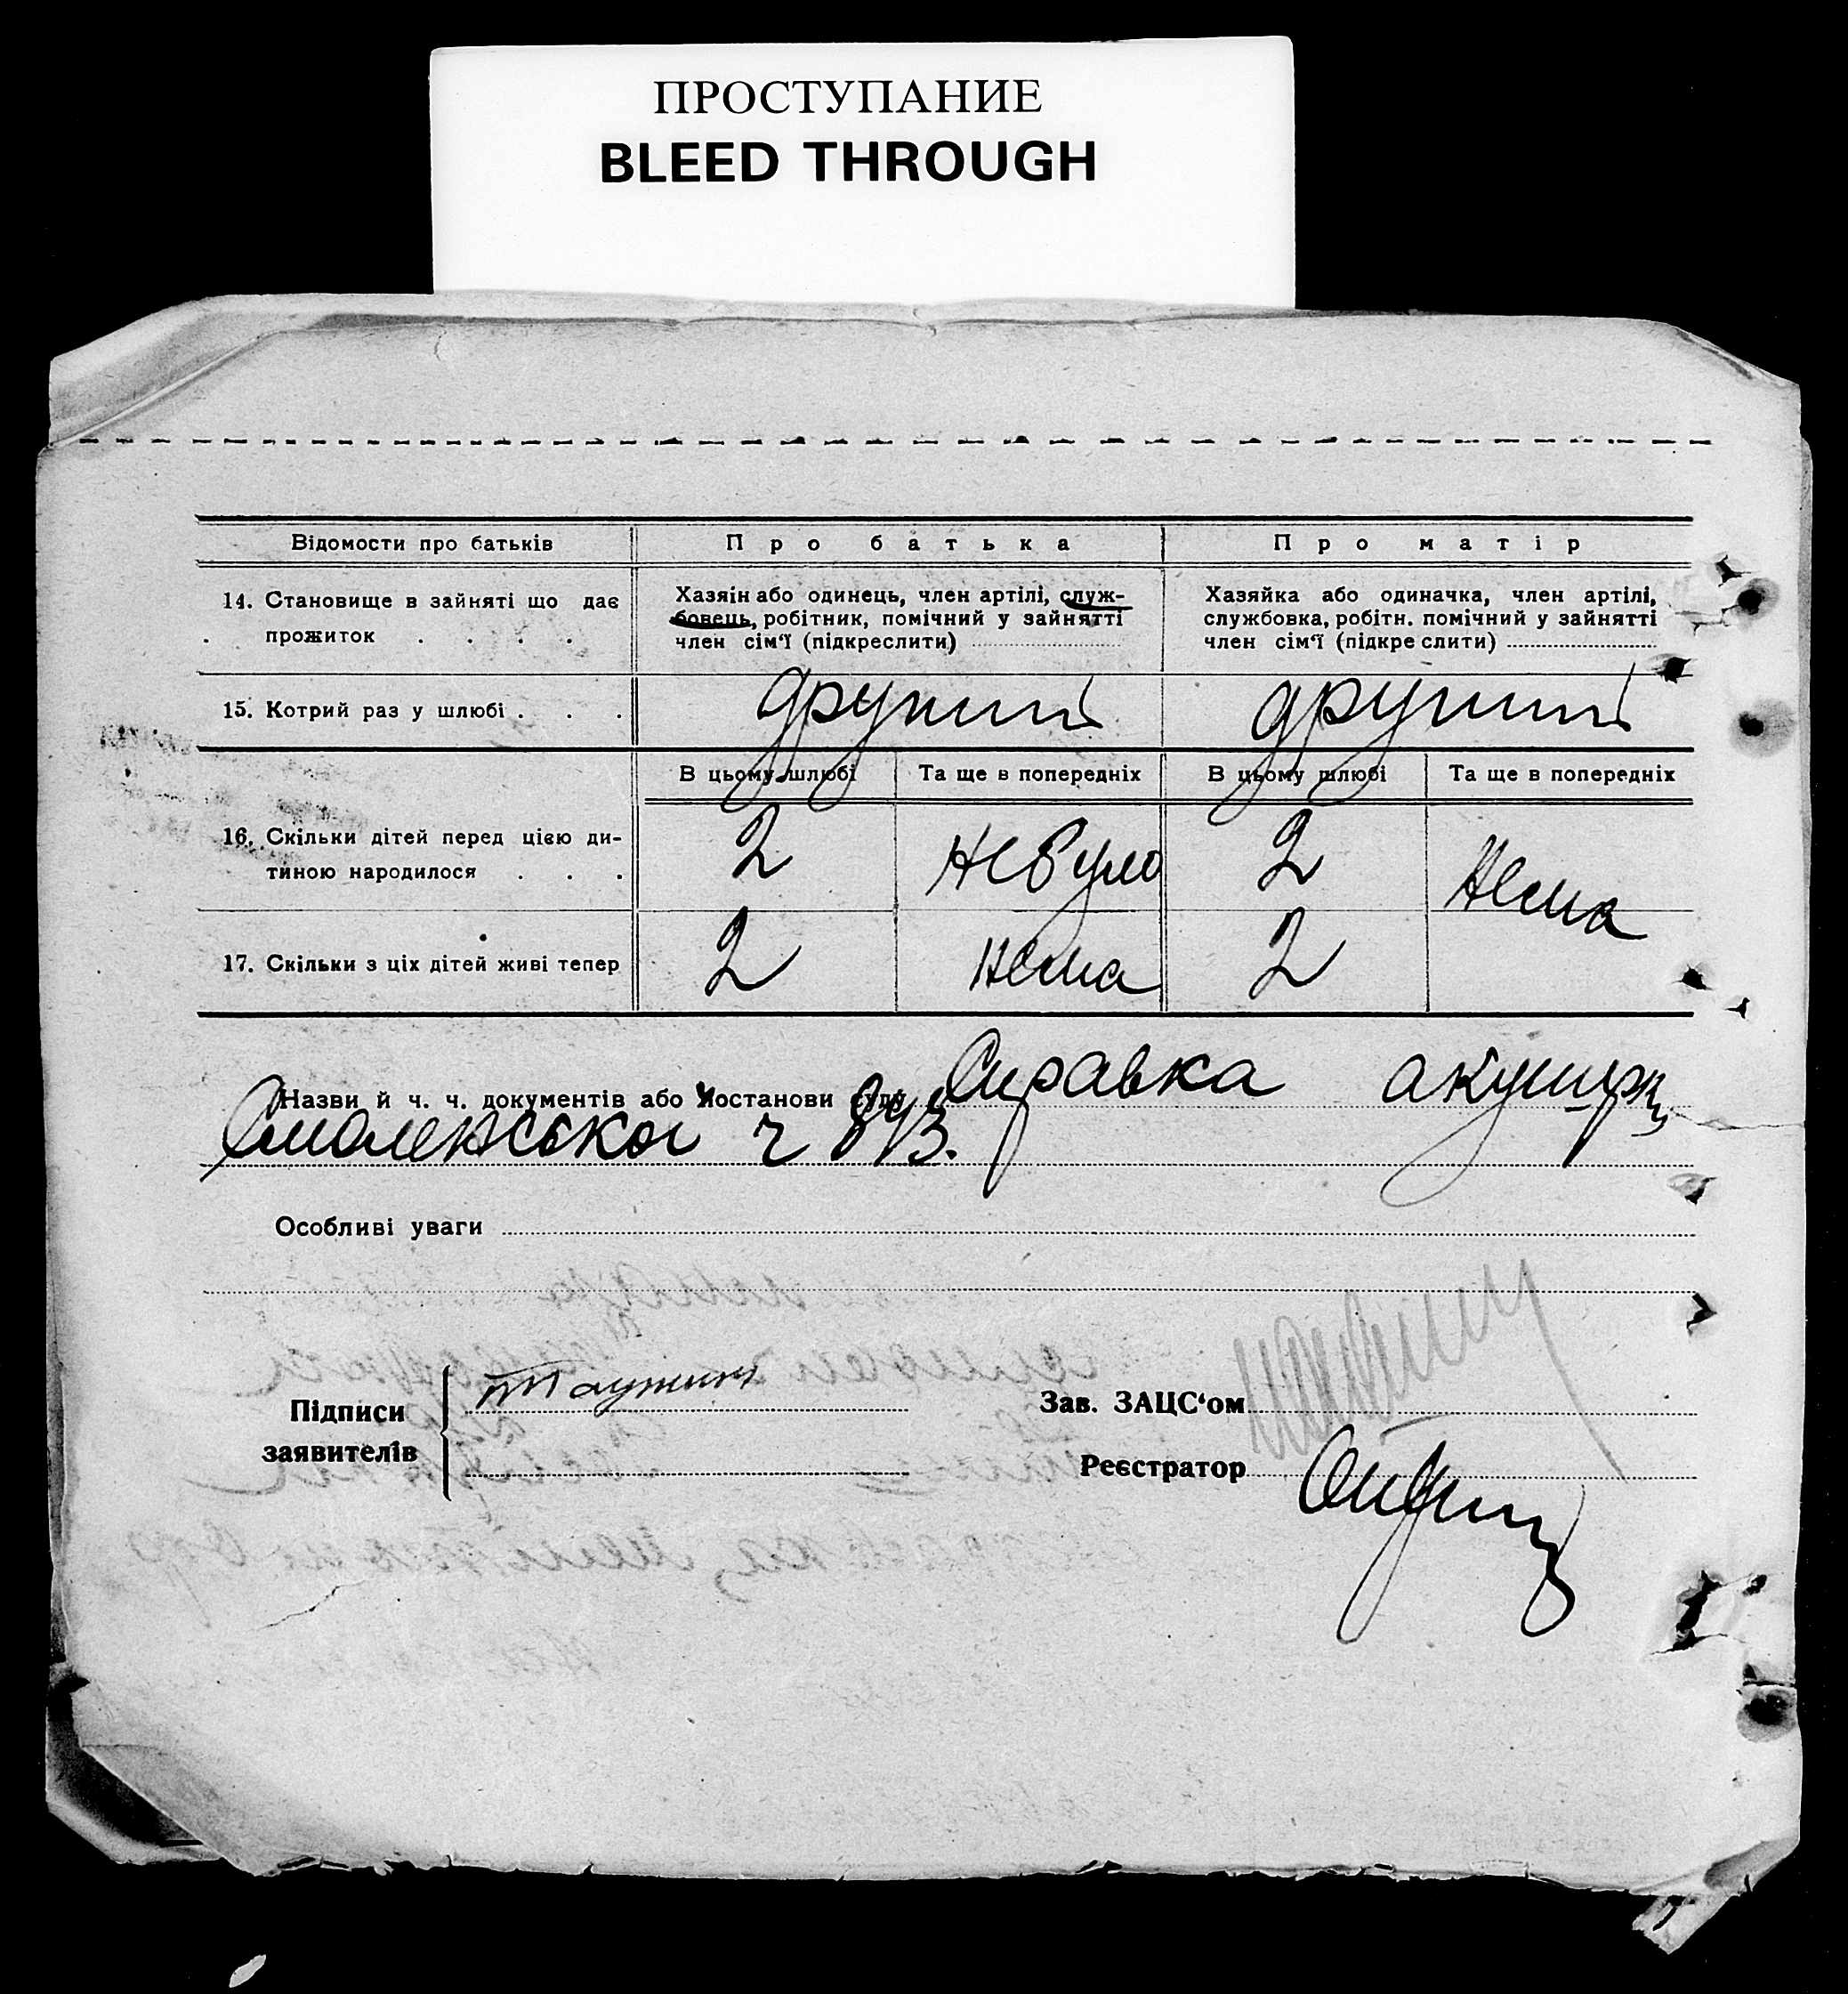 ПРОСТУПАНИЕ
BLEED THROUGH
Відомости про батьків
Про батька
Про матір
14. Становище в зайняті що дає
прожиток . . . .
Хазяін або одинець, член артілі, служ-
бовець, робітник, помічний у зайнятті
член сім‘ї (підкреслити)
Хазяйка або одиначка, член артілі,
службовка, робітн. помічний у зайнятті
член сім‘ї (підкреслити)
15. Котрий раз у шлюбі . . .
другий
другий
В цьому шлюбі
Та ще в попередніх
В цьому шлюбі
Та ще в попередніх
16. Скільки дітей перед цією ди-
тиною народилося . . .
2
не було
2
Нема
17. Скільки з ціх дітей живі тепер
2
Нема
2
Назви й ч. ч. документів або постанови суду Справка акушерки
Смоленської ч
Особливі уваги
Підписи
заявителів
Зав. ЗАЦС‘ом
Реєстратор